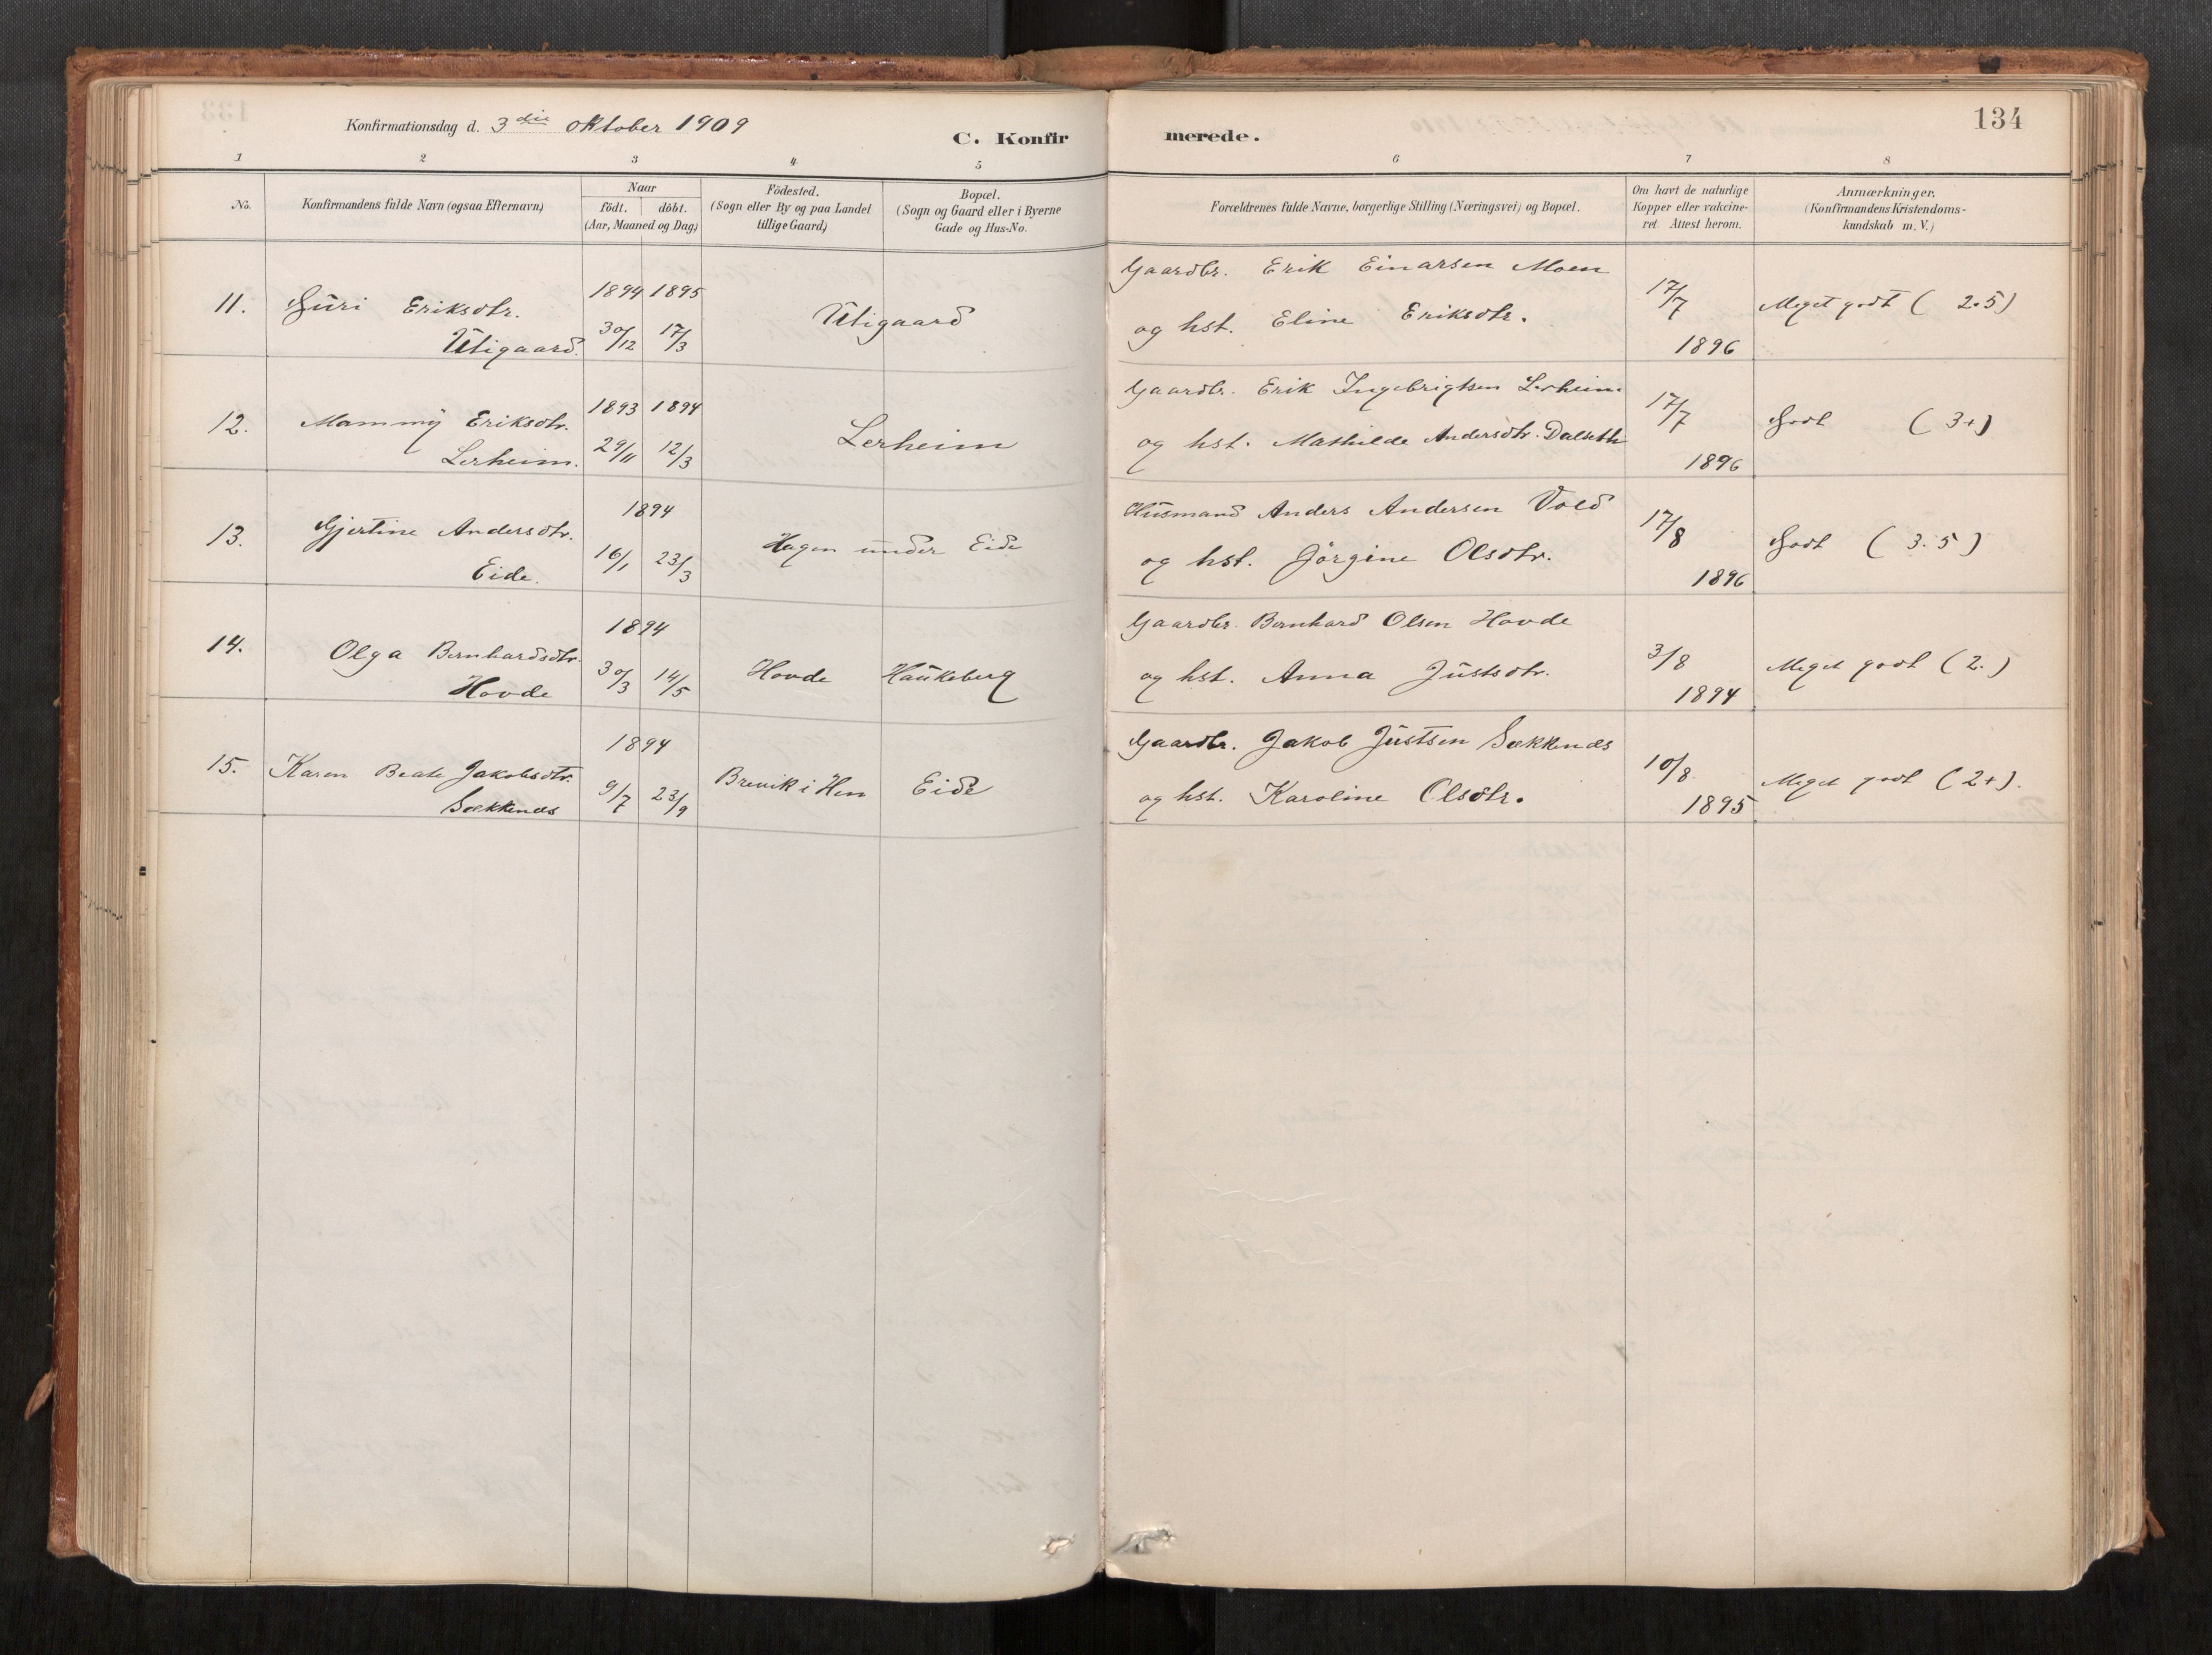 134
Konfirmationsdag d. 3die Oktober 1909
C. Konfirmerede.
1 2 3 4 5 6 7 8
No.
Konfirmandens fulde Navn (ogsaa Efternavn)
Naar
födt. döbt.
(Aar, Maaned og Dag)
Födested.
(Sogn eller By og paa Landet
tillige Gaard)
Bopæl.
(Sogn og Gaard eller i Byerne
Gade og Hus-No.
Forældrenes fulde Navne, borgerlige Stilling (Næringsvei) og Bopæl.
Om havt de naturlige
Kopper eller vakcine-
ret. Attest herom.
Anmærkninger.
(Konfirmandens Kristendoms-
kundskab m. V.)
11. Guri Eriksdtr.
Utigaard.
1894 1895
30/12 17/3
Utigaard
Gaardbr. Erik Einarsen Moen
og hst. Eline Eriksdtr.
17/7
1896
Meget godt ( 2.5)
12. Mammy Eriksdtr.
Lerheim.
1893 1894
29/11 12/3
Lerheim
Gaardbr. Erik Ingebrigtsen Lerheim
og hst. Mathilde Andersdtr. Dalseth
17/7
1896
Godt ( 3+)
13. Gjertine Andersdtr.
Eide.
1894
16/1 23/3
Hagen under Eide
Husmand Anders Andersen Vold
og hst. Jörgine Olsdtr.
17/8
1896
Godt ( 3.5 )
14. Olga Bernhardsdtr.
Hovde
1894
30/3 14/5
Hovde Haukeberg
Gaardbr. Bernhard Olsen Hovde
og hst. Anna Justsdtr.
3/8
1894
Meget godt (2.)
15. Karen Beate Jakobsdtr.
Sækkenæs
1894
9/7 23/9
Brevik i Hen Eide
Gaardbr. Jakob Justsen Sækkenæs
og hst. Karoline Olsdtr.
10/8
1895
Meget godt (2+).